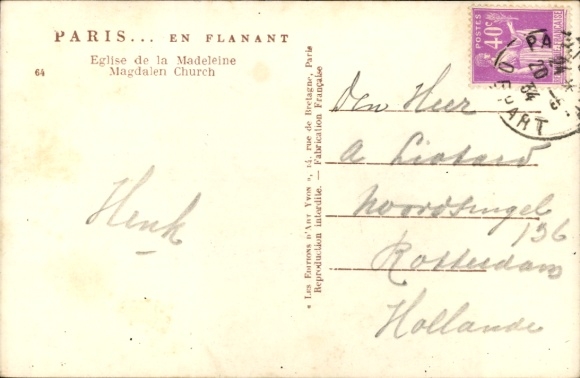 PARIS... EN FLANANT
Eglise de la Madeleine
64 Magdalen Church
Henk
« LES EDITIONS D'ART YVON », 15, rue de Bretagne, Paris
Reproduction interdite. — Fabrication Française
POSTES
40c
PA
20
34
DEPART
Den Heer
A Liotard
Noordsingel
136
Rotterdam
Hollande